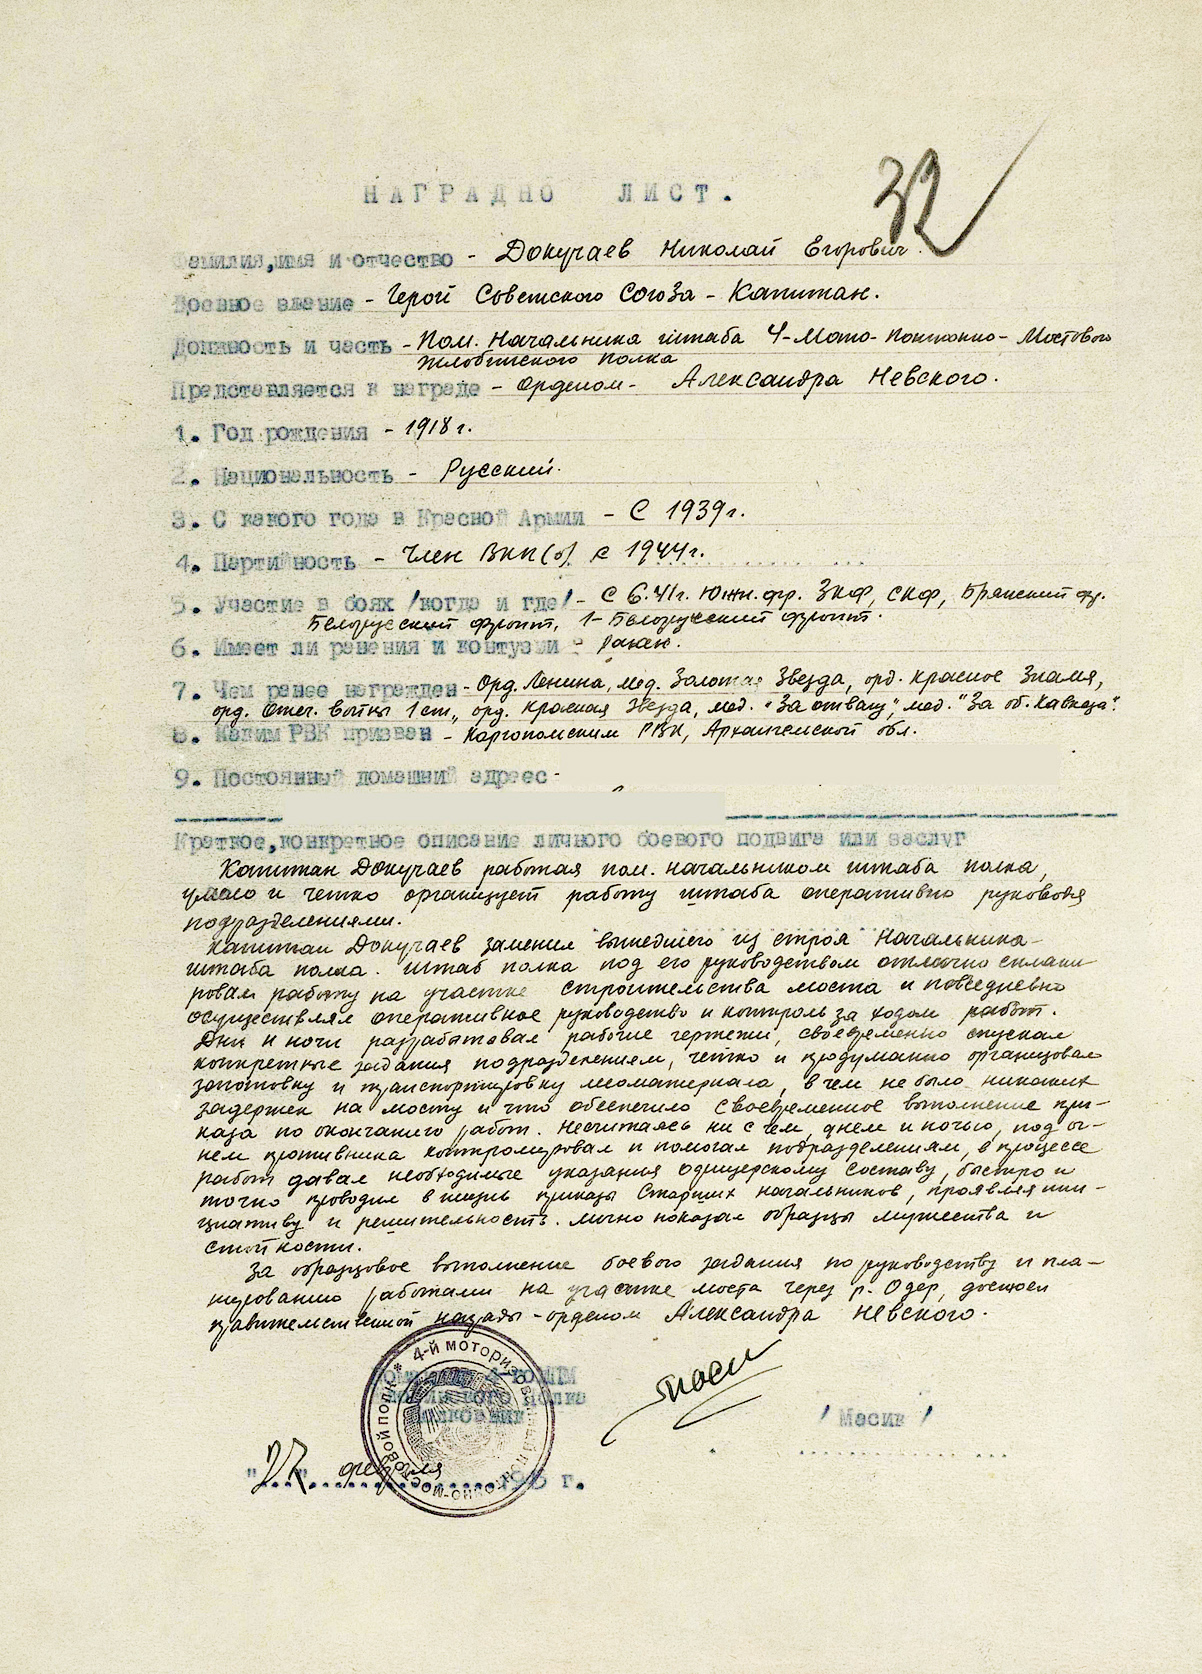 32
НАГРАДНО ЛИСТ.
Фамилия,имя и отчество - Докучаев Николай Егорович.
Военное звание - Герой Советского Союза - Капитан.
Должность и часть - Пом. Начальника штаба 4-Мото-Понтонно-Мостового
Жлобинского полка
Представляется к награде - Орденом - Александра Невского.
1. Год рождения - 1918 г.
2. Национальность - Русский.
3. С какого года в Красной Армии - С 1939 г.
4. Партийность - Член ВКП(б) с 1944 г.
5. Участие в боях /когда и где/ - С 6.41г. Южн. фр. ЗКФ, СКФ, Брянский фр.
Белорусский фронт, 1-Белорусский фронт.
6. Имеет ли ранения и контузии - ранен.
7. Чем ранее награжден - Орд. Ленина, мед. Золотая Звезда, орд. Красное Знамя,
орд. Отеч. войны 1 ст., орд. Красная Звезда, мед. "За отвагу", мед. "За об. Кавказа".
8. Каким РВК призван - Каргопольским РВК, Архангельской обл.
9. Постоянный домашний адрес -
Краткое,конкретное описание личного боевого подвига или заслуг
Капитан Докучаев работая пом. начальником штаба полка,
умело и четко организует работу штаба оперативно руководя
подразделениями.
Капитан Докучаев заменил вышедшего из строя Начальника
штаба полка. Штаб полка под его руководством отлично сплани-
ровал работу на участке строительства моста и повседневно
осуществлял оперативное руководство и контроль за ходом работ.
Дни и ночи разработовал рабочие чертежи, своевременно спускал
конкретные задания подразделениям, четко и продуманно организовал
заготовку и транспортировку лесоматериала, в чем не было никаких
задержек на мосту и что обеспечило своевременное выполнение при-
каза по окончанию работ. Несчитаясь ни с чем, днем и ночью, под ог-
нем противника контролировал и помогал подразделениям, в процессе
работ давал необходимые указания офицерскому составу, быстро и
точно проводил в жизнь приказы Старших начальников, проявляя ини-
циативу и решительность. Лично показал образцы мужества и
стойкости.
За образцовое выполнение боевого задания по руководству и пла-
нированию работами на участке моста через р. Одер, достоен
правительственной награды - орденом Александра Невского.
4-й моториз
полка
полковник
/ Масик /
"27" февраля 1945 г.